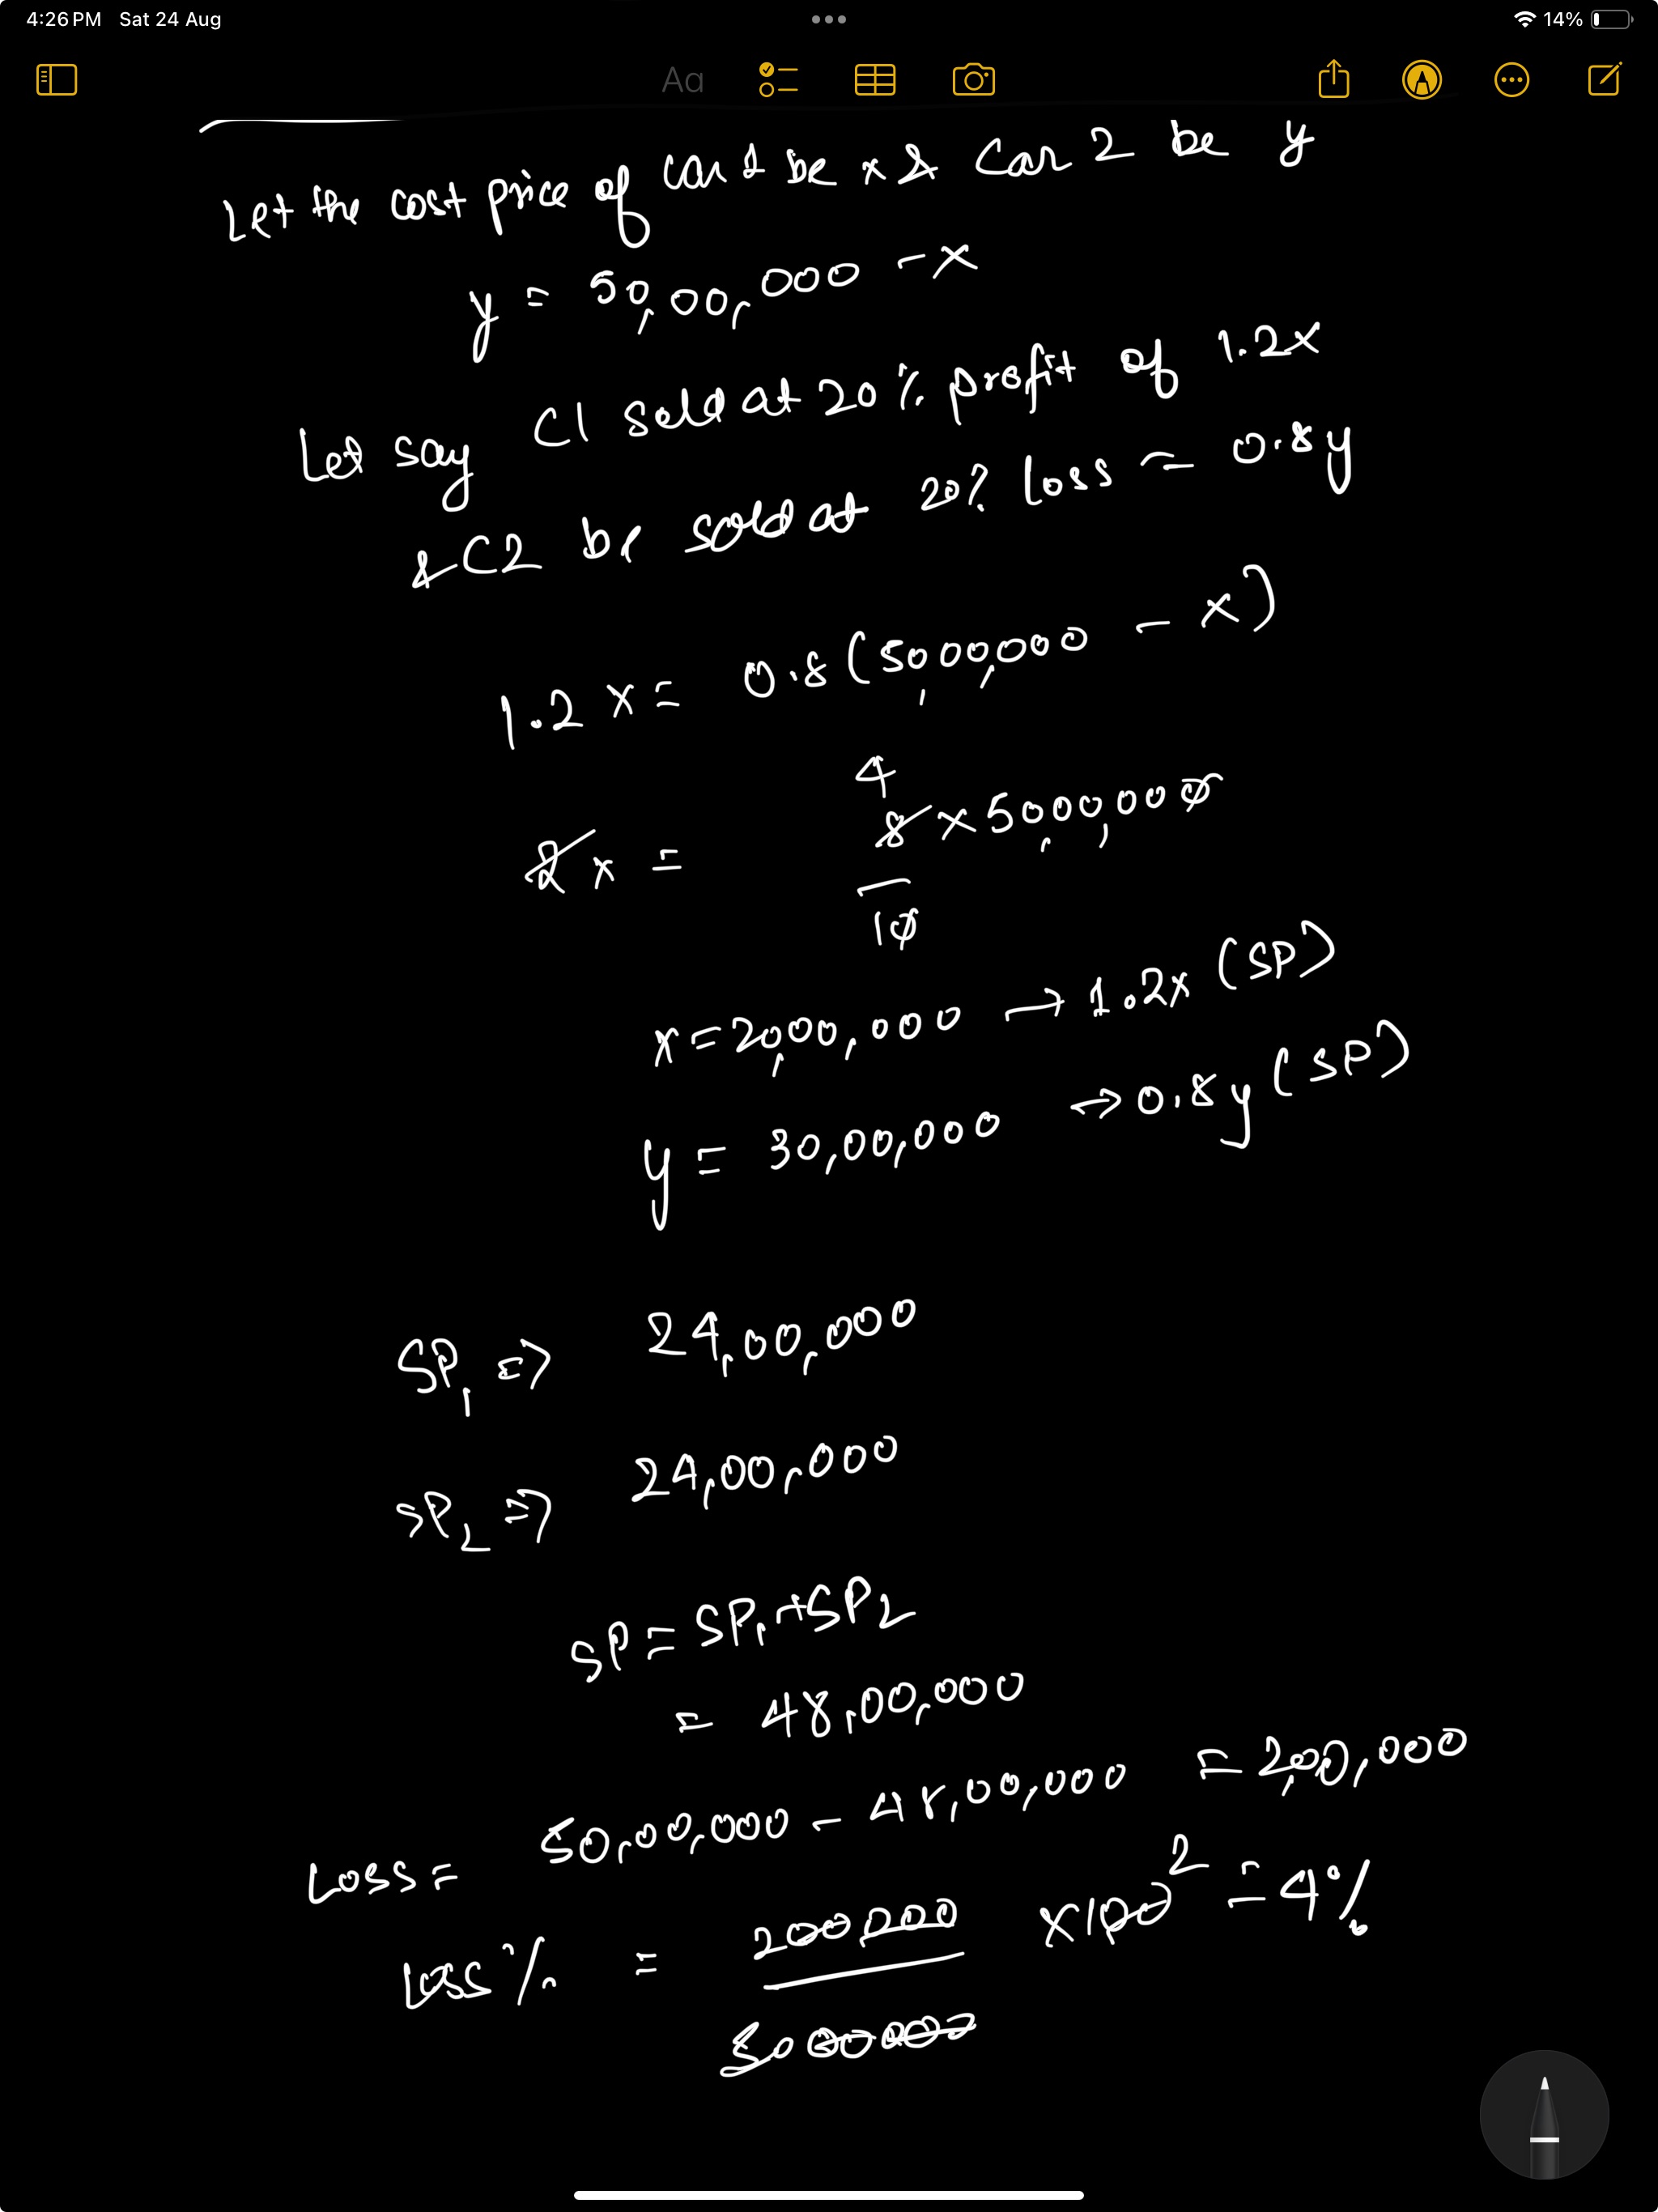 4:26 PM Sat 24 Aug
14%
Aa
Let the cost price of car 1 be x & Car 2 be y
y = 50,00,000 - x
Let say C1 sold at 20% profit of 1.2x
& C2 be sold at 20% loss = 0.8y
1.2 x = 0.8 (50,00,000 - x)
4
2x = 8 x 50,00,000
10
x = 20,00,000 → 1.2x (SP)
y = 30,00,000 → 0.8y (SP)
SP1 ⇒ 24,00,000
SP2 ⇒ 24,00,000
SP = SP1 + SP2
= 48,00,000
Loss = 50,00,000 - 48,00,000 = 2,00,000
2
Loss % = 200,000 x 100 = 4%
5000000